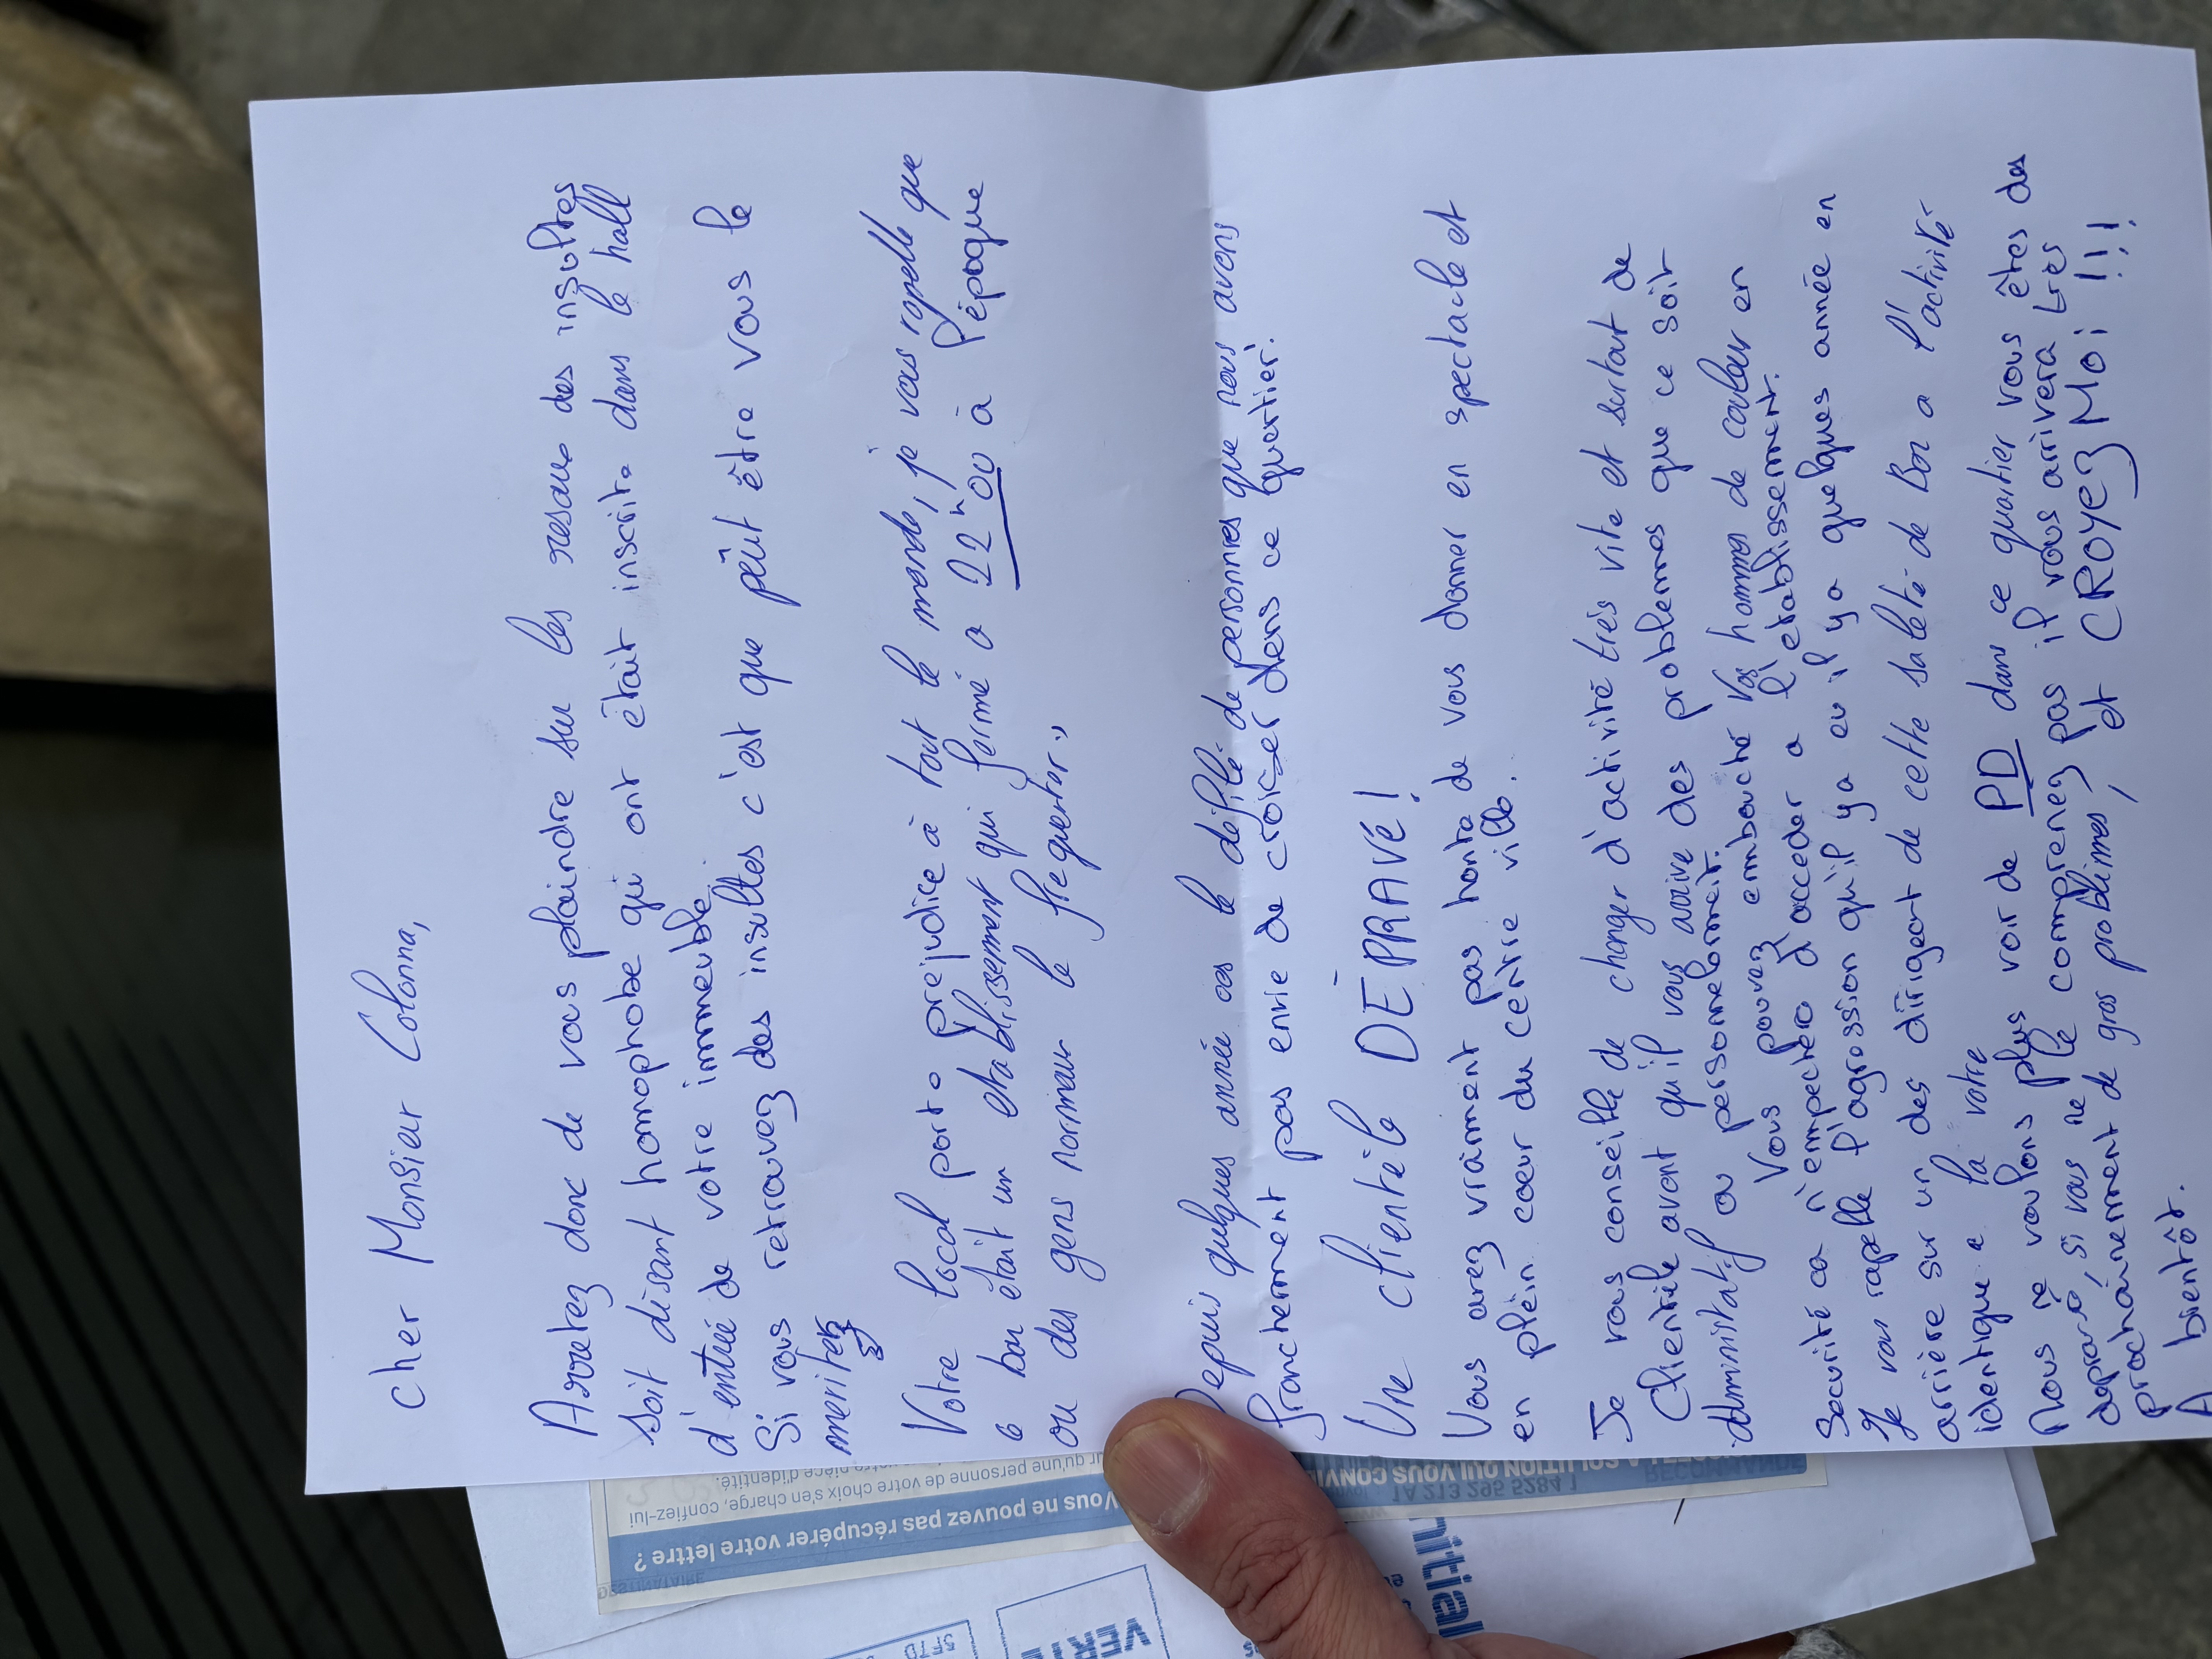 cher Monsieur Colonna,
Arretez donc de vous plaindre sur les resaux des insultes
soit disant homophobe qui ont était inscrite dans le hall
d'entrée de votre immeuble.
Si vous retrouvez des insultes c'est que peût être vous le
meritez
Votre local porte prejudice à tout le monde, je vous rapelle que
bar était un etablissement qui fermé a 22h00 à l'époque
ou des gens normaux le frequenter.
Depuis quelques année le défilé de personnes que nous avons
franchement pas envie de croiser dans ce quartier!
Une clientèle DÉPRAVÉ!
Vous avez vraiment pas honte de vous donner en spectacle et
en plein coeur du centre ville.
Je vous conseille de changer d'activité très vite et surtout de
Clientèle avant qu'il vous arrive des problemes que ce soit
administratif ou personnelement.
Vous pouvez embouché vos hommes de couleur en
Securité ca n'empechera d'acceder a l'etablissement.
Je vous rapelle l'agression qu'il ya eu il ya quelques année en
arrière sur un des dirigeant de cette saleté de Bar a l'activité
identique a la votre
Nous ne voulons plus voir de PD dans ce quartier vous êtes des
depravé, si vous ne le comprenez pas il vous arrivera très
prochainement de gros problèmes, et CROYEZ MOI !!!
A bientôt.
Vous ne pouvez pas récupérer votre lettre ?
qu'une personne de votre choix s'en charge, confiez-lui
pièce d'identité.
5FTD
VERTE
nitial
1A 213 295 5284 1